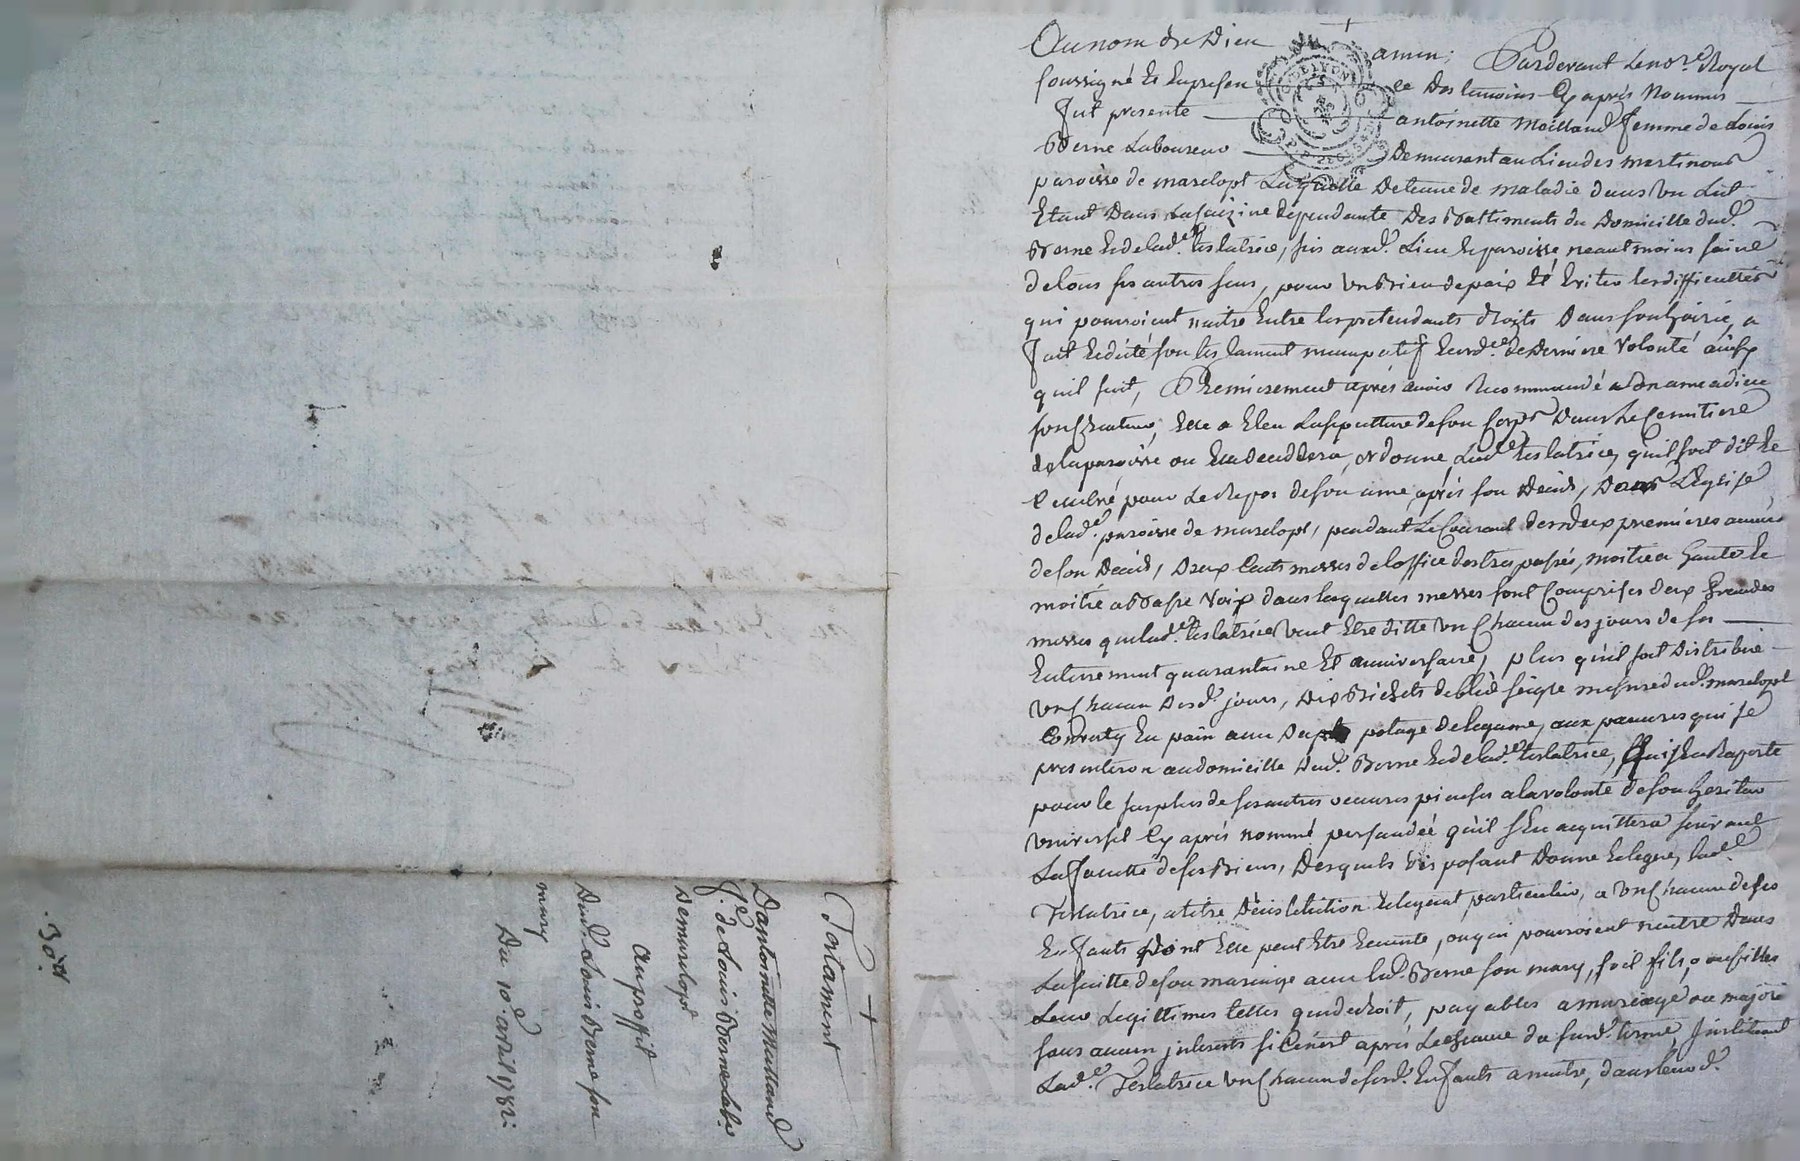 Au nom de Dieu amen; Pardevant Le no.re Royal
soussigné et En presence des temoins Cy après Nommés
fut presente antoinette Mailland femme de Louis
Berne Laboureur Demeurant au Lieu des martinons
paroisse de marclopt Laquelle detenue de maladie dans un Lit
Etant dans la cuizine dependante des Battiments du Domicille dud.
Berne et de lad.e testatrice, sis auxd. Lieu et paroisse, neantmoins saine
de tous ses autres sens, pour un Bien de paix Et Eviter les difficultés
qui pourroient naitre Entre les pretendants droits dans son hoirie, a
fait et dicté son testament nuncupatif et ord.ce de derniere Volonté ainsy
quil suit, Premierement après avoir Recommandé son ame a dieu
son Createur, Elle a Eleu La sepulture de son Corps dans le Cemitiere
de la paroisse ou Elle deceddera, ordonne, Lad.e testatrice, qu'il soit dit Et
Celebré pour Le Repos de son ame, après son Decès, Dans L'Eglise
de lad.e paroisse de marclopt, pendant Le Courant des deux premieres années
de son Decès, Deux Cents messes de l'office des trepassés, moitié a haute Et
moitié a Basse Voix dans lesquelles messes sont Comprises deux Grandes
messes que lad.e testatrice veut Etre ditte un Chacun des jours de ses
Enterrement quarantaine Et anniversaire, plus qu'il soit Distribué
un Chacun desd. jours, Dix Bichets de bled seigle mesure dud. marclopt
Converty En pain avec Du potage de legume, aux pauvres qui se
presenteron au domicille dud. Berne et de lad.e testatrice, qui s'En Raporte
pour le surplus de ses autres oeuvres pieuses a la volonté de son heritier
universel Cy après nommé persuadée qu'il s'En acquittera suivant
La faculté de ses Biens, Desquels disposant Donne et legue, lad.e
Testatrice, a titre d'institution et legat particulier, a un Chacun de ses
Enfants dont Elle peut Etre Enceinte, ou qui pourroient naitre Dans
La suitte de son mariage avec led. Berne son mary, soit fils, ou filles
Leur Legittimes telles que de droit, payables a mariage ou majorité
sans aucun interests si Ce n'est après L'echeance du susd. terme, Instituant
Lad.e Testatrice un Chacun de sesd. Enfants a naitre, dans leurd.
Testament
D'antoinette Mailland
f.e de Louis Berne Lab.r
De marclopt
Au proffit
Dud. Louis Berne son
mary
Du 10.e avril 1782.
30.